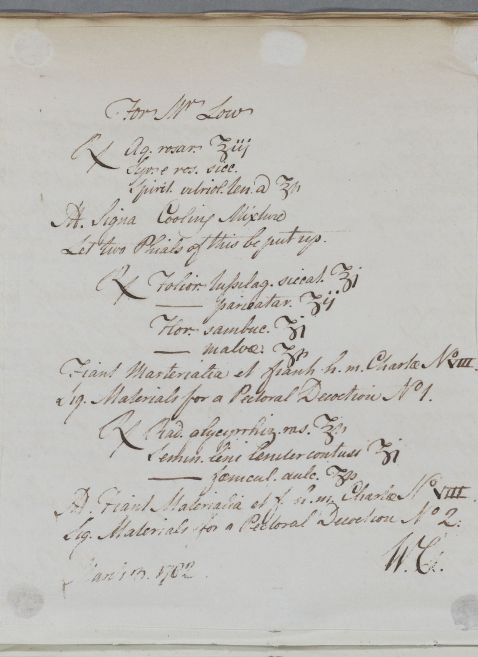 For Mr Low
℞ Aq. rosar. ℥iij
Syr. e ros. sicc.
Spirit. vitriol. ten. a ʒß
M. Signa Cooling Mixture
Let two Phials of this be put up.
℞ Folior. tussilag. siccat. ℥j
—— parietar. ʒij
Flor. sambuc. ℥j
— malvæ ℥ß
Fiant Materialia et fianth. s. m. Chartæ No VIII.
Sig. Materials for a Pectoral Decoction No 1.
℞ Rad. glycyrrhiz. ras. ℥ß
Semin. lini leniter contusi ℥j
—— fœnicul. dulc. ʒß
M. Fiant Materialia et f. s. m. Chartæ No VIII
Sig. Materials for a Pectoral Decoction No 2.
W. C.
Jan: 13. 1782